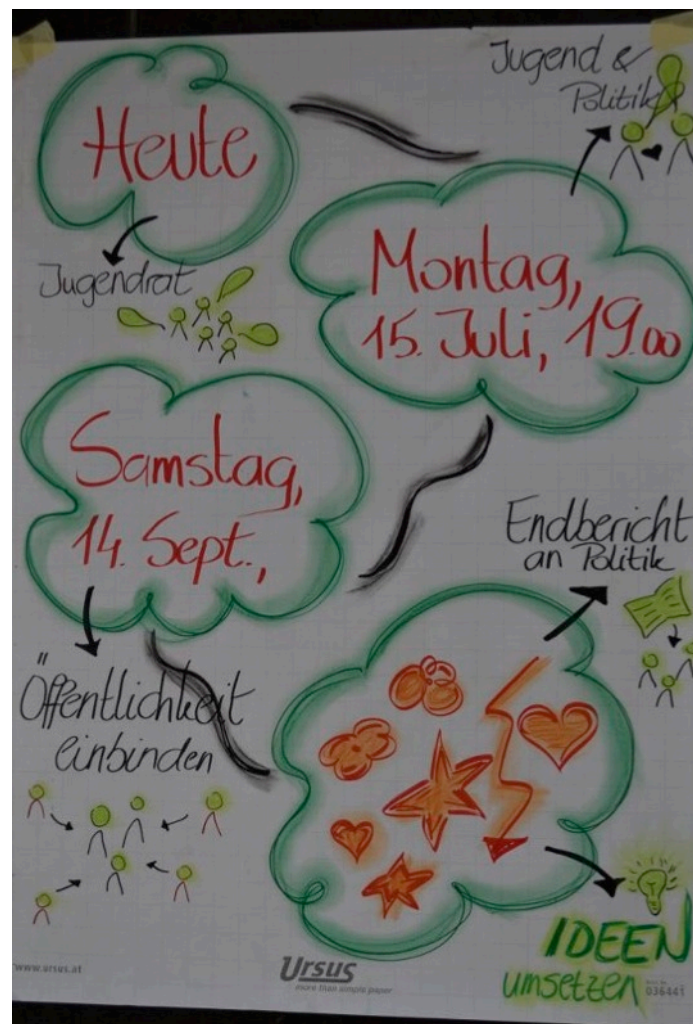 Heute
Jugendrat
Jugend &
Politik
Montag,
15. Juli, 19.00
Samstag,
14. Sept.,
Öffentlichkeit
einbinden
Endbericht
an Politik
IDEEN
umsetzen
www.ursus.at
Ursus
more than simple paper
036441